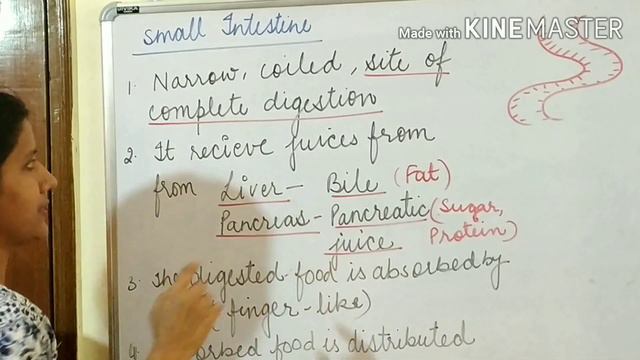 Made with KINEMASTER
Small Intestine
1. Narrow, coiled, site of
complete digestion
2. It recieve juices from
from Liver - Bile (Fat)
Pancrias - Pancreatic (Sugar,
juice Protein)
3. The digested food is absorbed by
finger-like)
4. food is distributed